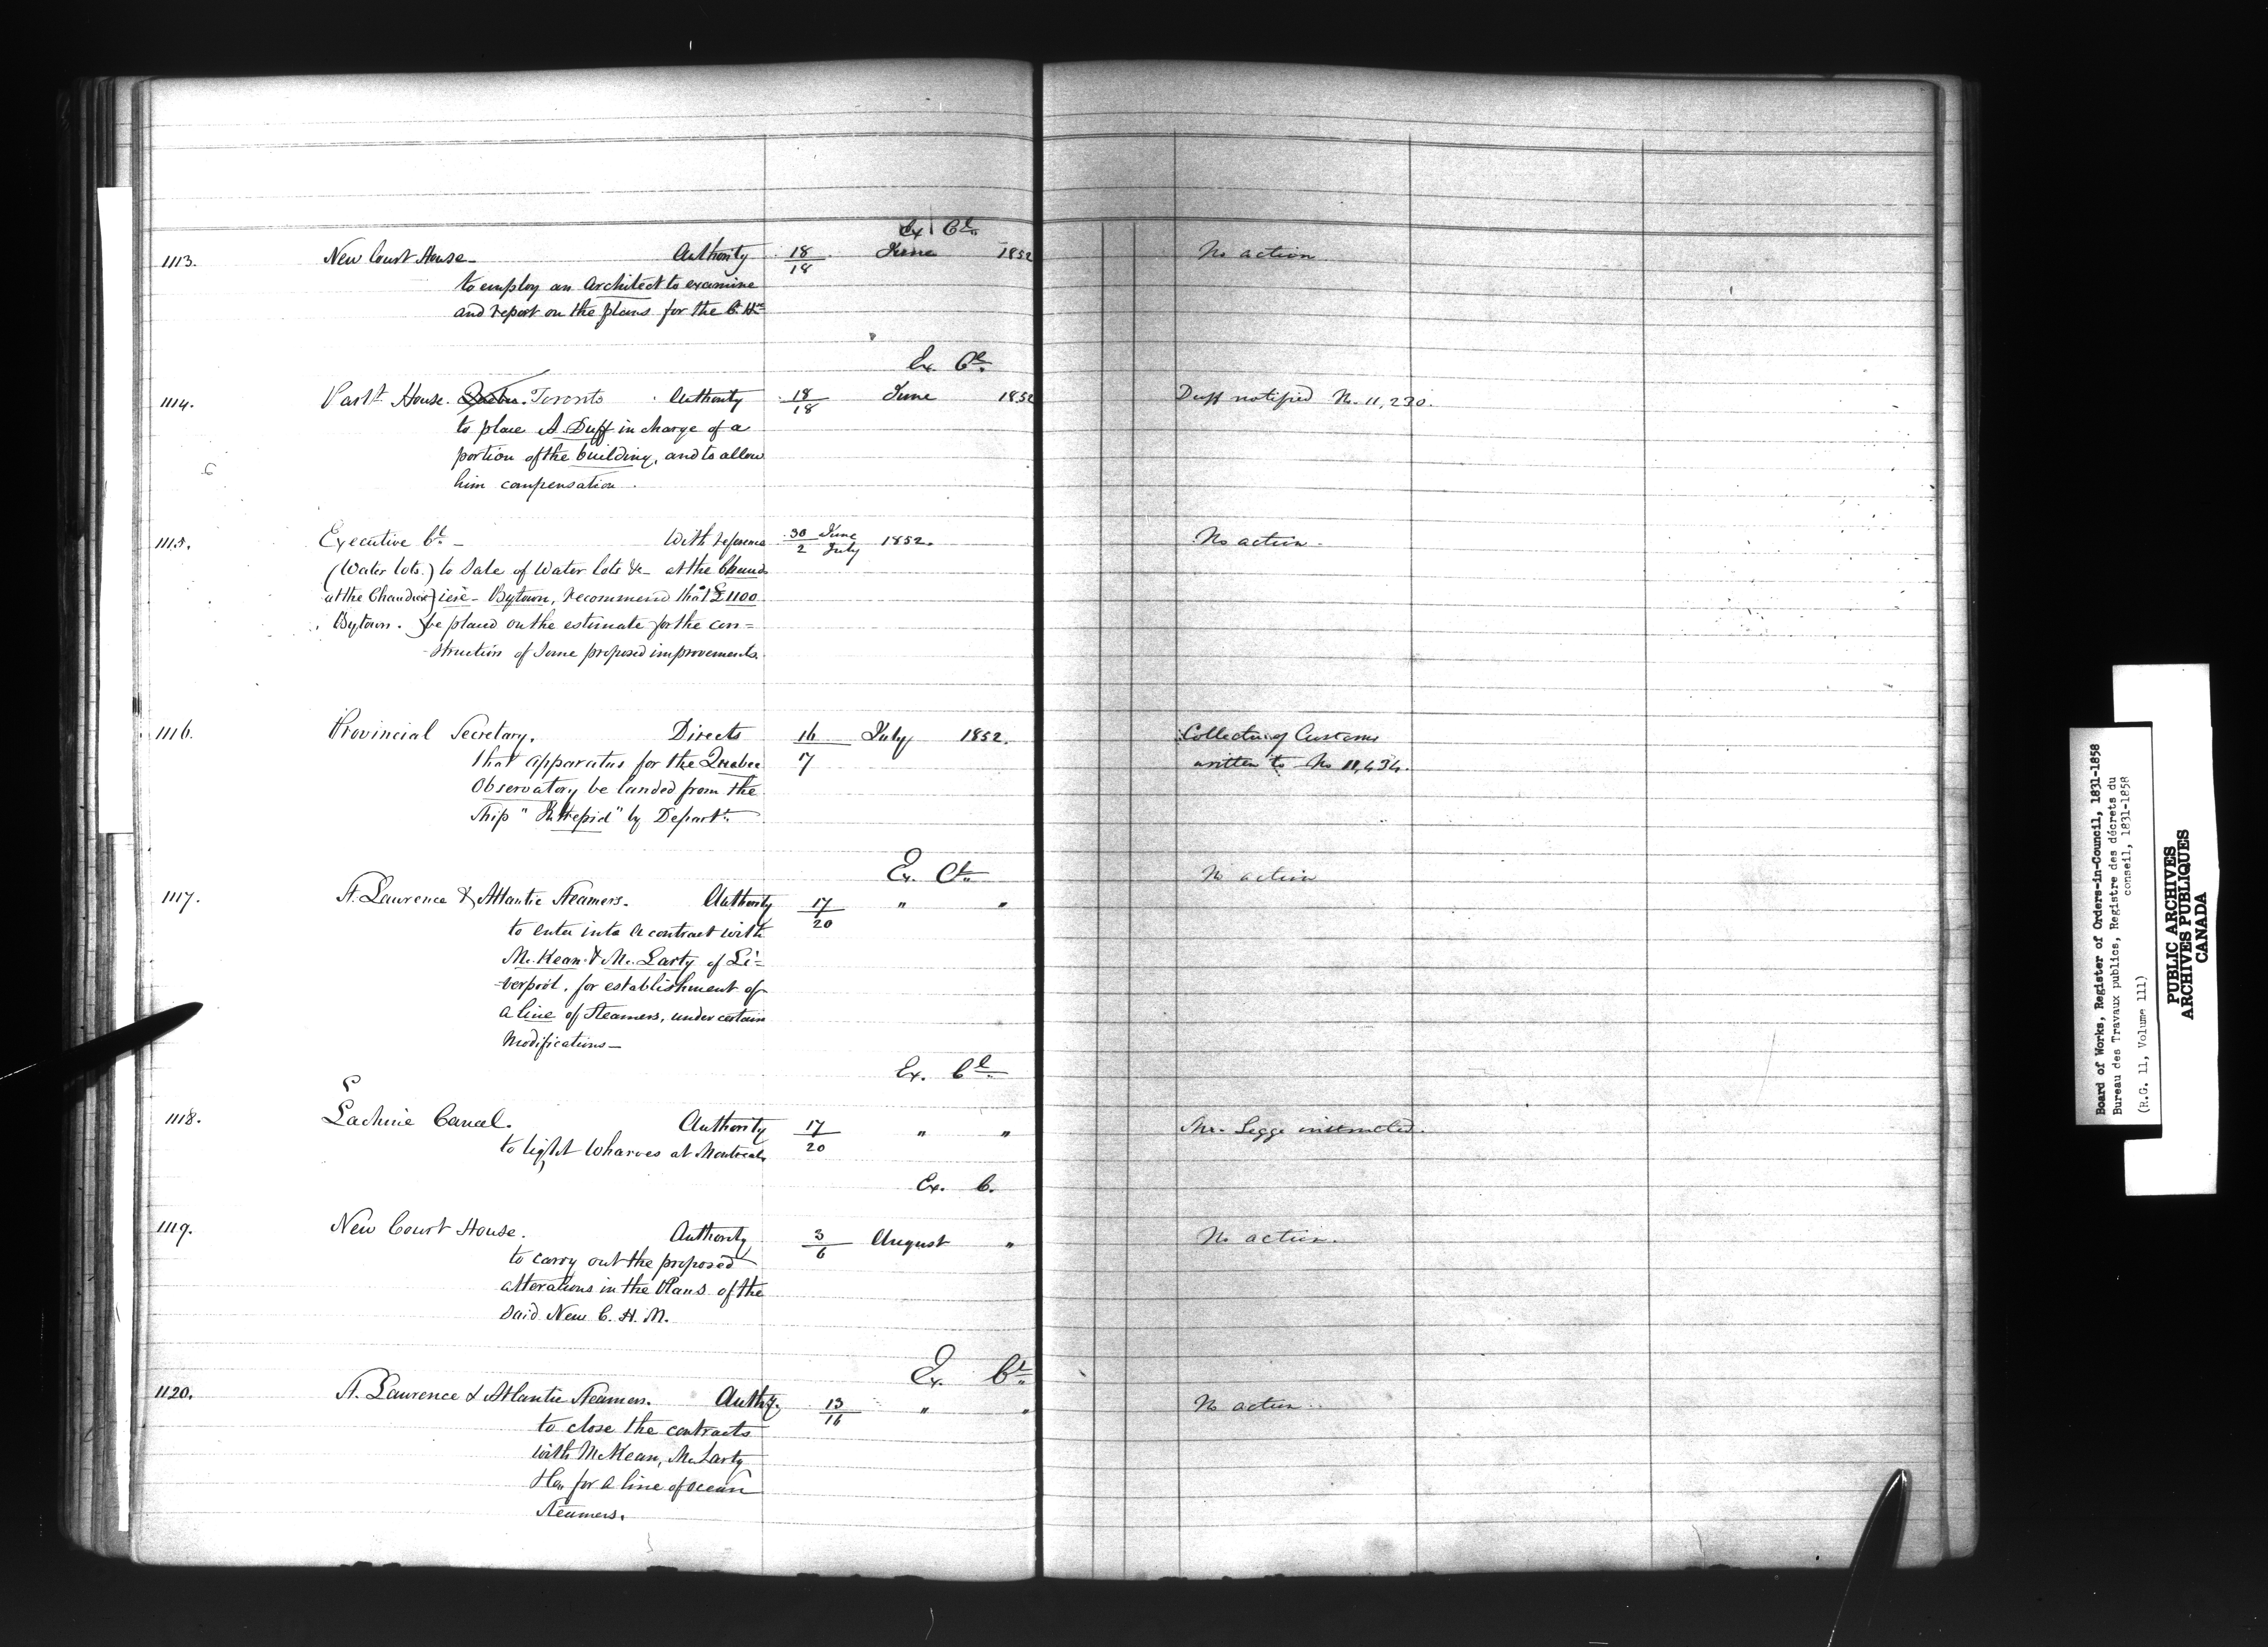 Ex Cl.
1113. New Court House - Authority 18/18 June 1852 No action
to employ an Architect to examine
and report on the plans for the C. Hse
Ex. Cl.
1114. Parlt House. Quebec. Toronto Authority 18/18 June 1852 Duff notified No. 11,230.
to place A. Duff in charge of a
portion of the building, and to allow
him compensation.
1115. Executive Cl. - With reference 30/2 June/July 1852. No action.
(Water lots.) to Sale of Water lots &c - at the Chaud
at the Chaudière) ière - Bytown, recommend that £1100
Bytown. } be placed on the estimate for the con=
struction of some proposed improvements.
1116. Provincial Secretary. Directs 16/7 July 1852. Collector of Customs
that apparatus for the Quebec written to No 11,434.
Observatory be landed from the
Ship "Intrepid" by Depart.
Ex. Cl.
1117. St. Lawrence & Atlantic Steamers. Authority 17/20 " " No action
to enter into a contract with
McKean & McLarty of Li=
verpool. for establishment of
a line of Steamers, under certain
modifications -
Ex. Cl.
1118. Lachine Canal. Authority 17/20 " " Mr. Legge instructed.
to light Wharves at Montreal.
Ex. C.
1119. New Court House. Authority 3/6 August " No action.
to carry out the proposed
alterations in the Plans of the
said New C. H. M.
Ex. Cl.
1120. St. Lawrence & Atlantic Steamers. Authy. 13/16 " " No action.
to close the contracts
with McKean, McLarty
for a line of ocean
Steamers.
Board of Works, Register of Orders-in-Council, 1831-1858
Bureau des Travaux publics, Registre des décrets du
conseil, 1831-1858
(R.G. 11, Volume 111)
PUBLIC ARCHIVES
ARCHIVES PUBLIQUES
CANADA